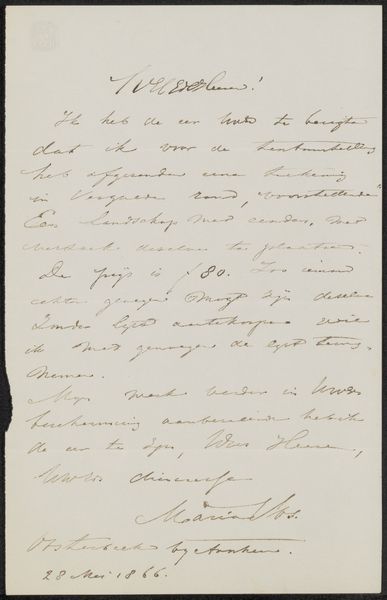 WelEd Heeren!
Ik heb de eer UwEd te berigten
dat ik voor de tentoonstelling
heb afgezonden eene teekening
in vergulde rand, voorstellende
Een landschap met eenden, met
verzoek dezelve te plaatsen.
De prijs is ƒ 80. Zoo iemand
echter genegen mogt zijn dezelve
zonder lijst aantekoopen wil
ik met genoegen de lijst terug
nemen.
Mijn werk verder in UwEd
bescherming aanbevelende heb ik
de eer te zijn, WelEd Heeren,
UwEd dienaresse
Maria Vos.
Oosterbeek by Arnhem.
28 Mei 1866.